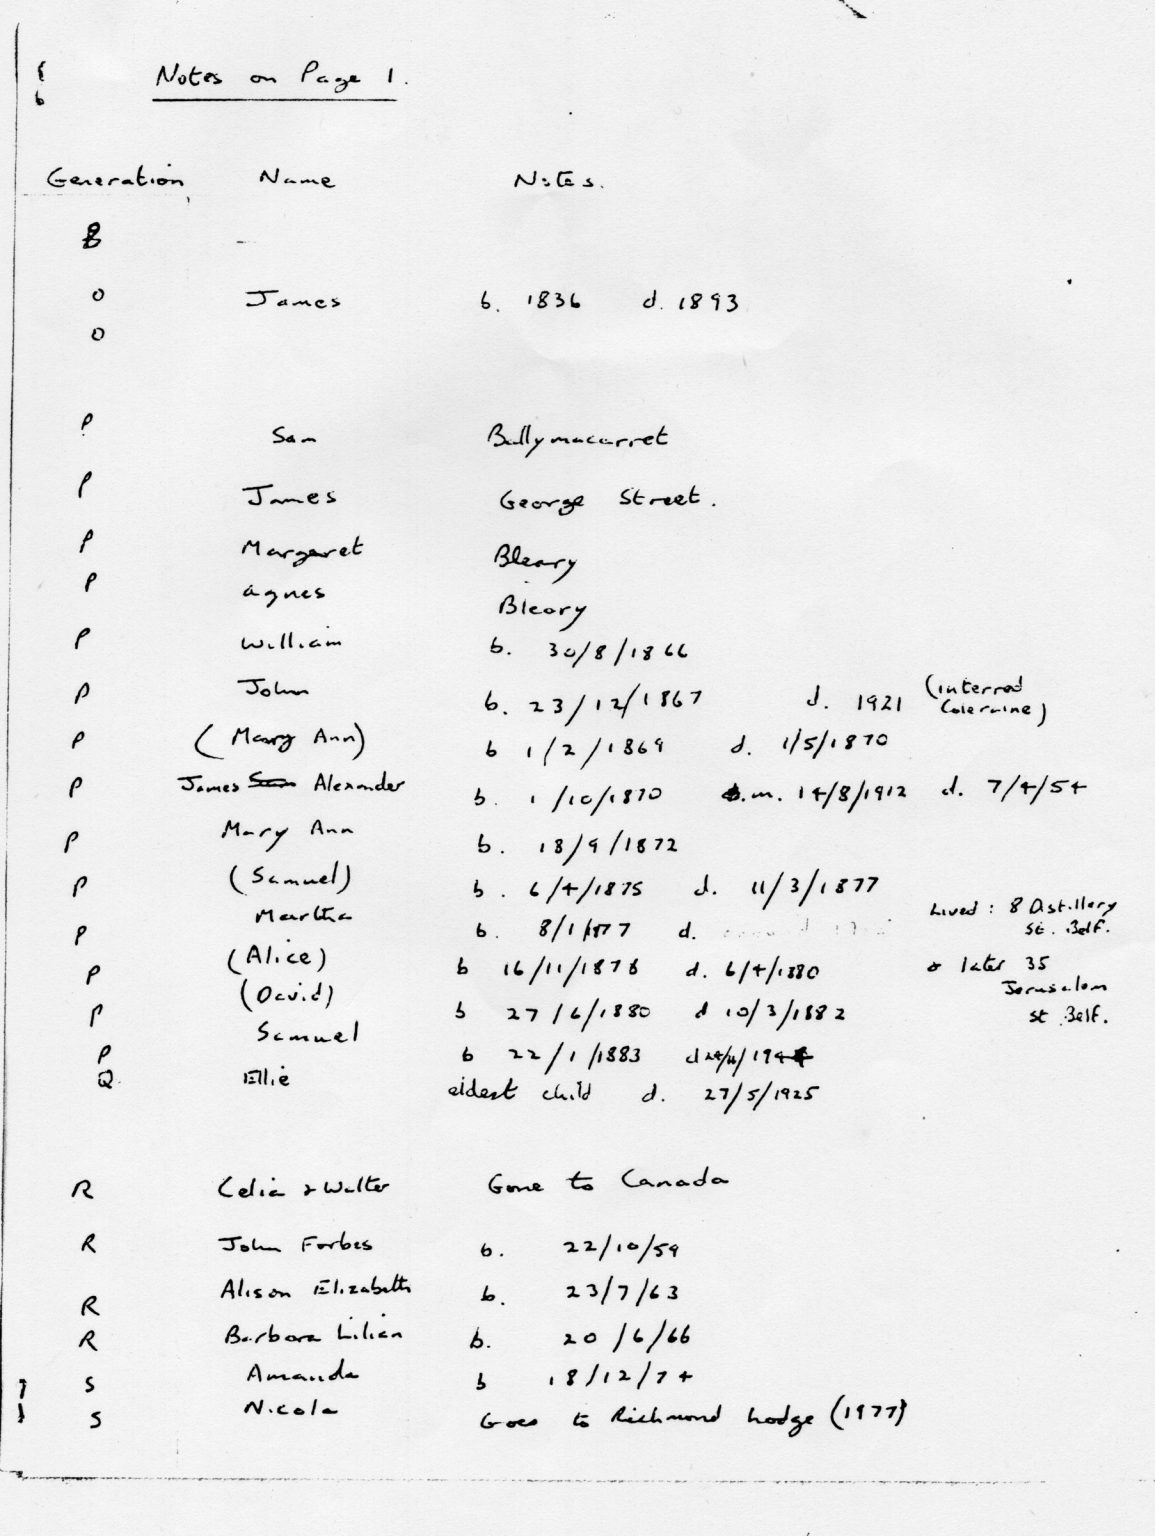 Notes on Page 1.
Generation Name Notes.
-
O James b. 1836 d. 1893
O
P Sam Ballymacarret
P James George Street.
P Margaret Bleary
P Agnes Bleary
P William b. 30/8/1866
P John b. 23/12/1867 d. 1921 (interred Coleraine)
P (Mary Ann) b 1/2/1869 d. 1/5/1870
P James Alexander b. 1/10/1870 m. 14/8/1912 d. 7/4/54
P Mary Ann b. 18/9/1872
P (Samuel) b. 6/4/1875 d. 11/3/1877
P Martha b. 8/1/1877 d. Lived: 8 Distillery St. Belf.
P (Alice) b 16/11/1878 d. 6/4/1880 & later 35 Jerusalem St Belf.
P (David) b 27/6/1880 d 10/3/1882
P Samuel b 22/1/1883 d
Q. Ellie eldest child d. 27/5/1925
R Celia & Walter Gone to Canada
R John Forbes b. 22/10/59
R Alison Elizabeth b. 23/7/63
R Barbara Lilian b. 20/6/66
S Amanda b 18/12/74
S Nicola Goes to Richmond Lodge (1977)